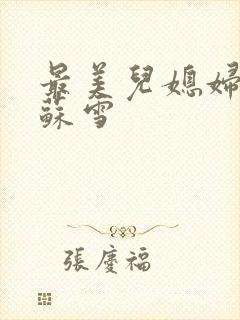 最美兒媳婦
蘇雪
張慶福